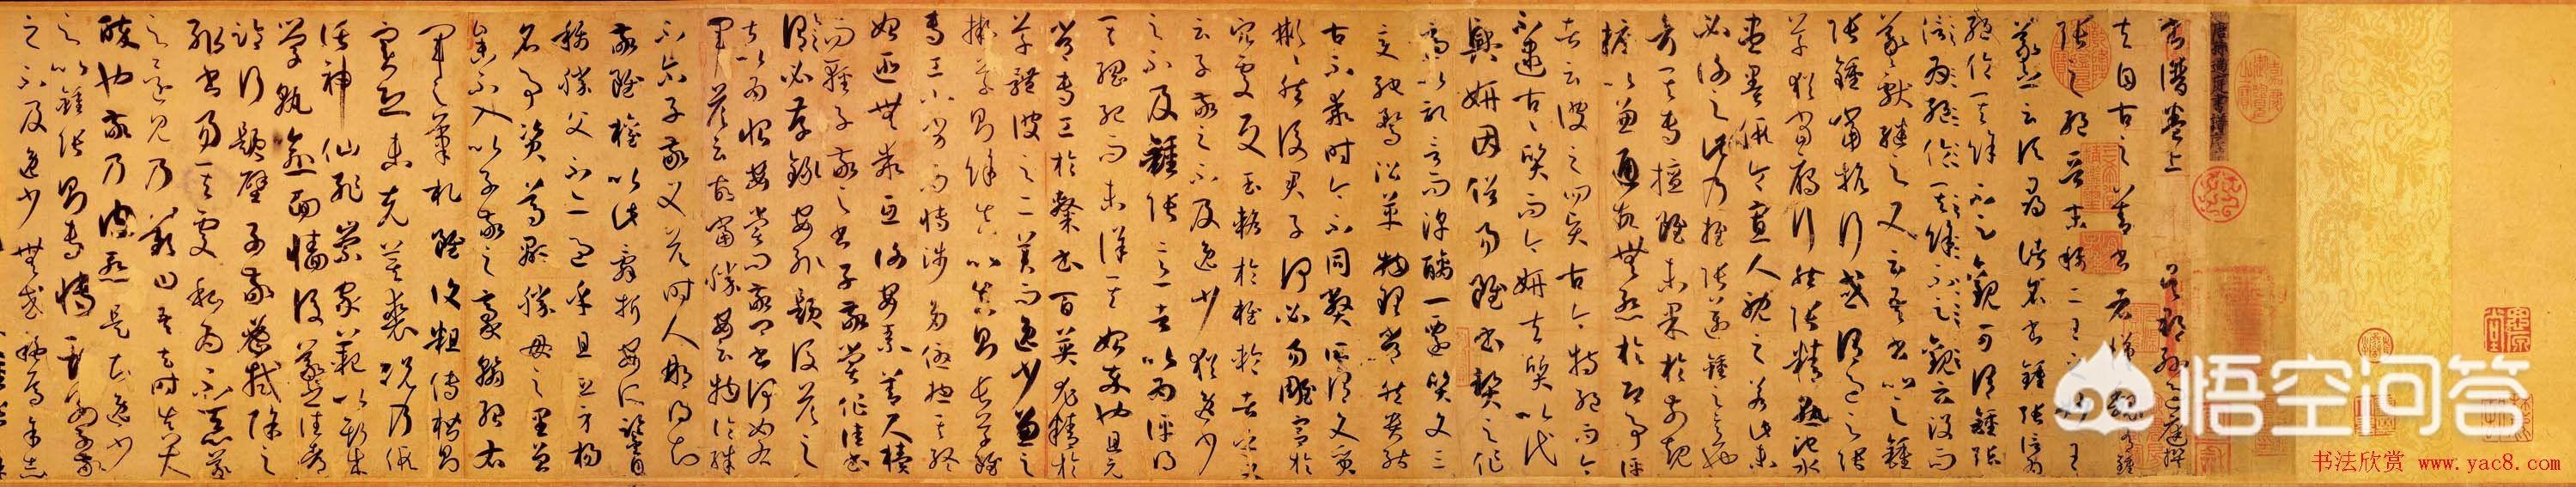 書譜卷上 吳郡孫過庭撰
夫自古之善書者漢魏有鍾
張之絕晉末稱二王之妙王
羲之云頃尋諸名書鍾張信為
絕倫其餘不足觀可謂鍾張
云沒而
羲獻繼之又云吾書比之鍾
張鍾當抗行或謂過之張
草猶當雁行然張精熟池水
盡墨假令寡人耽之若此未
必謝之此乃推張邁鍾之意也
考其專擅雖未果於前規
摭以兼通故無慚於即事評
者云彼之四賢古今特絕而今
不逮古古質而今妍夫質以代
興妍因俗易雖書契之作
適以記言而淳醨一遷質文三
變馳騖沿革物理常然貴能
古不乖時今不同弊所謂文質
彬彬然後君子何必易雕宮於
穴處反玉輅於椎輪者乎又
云子敬之不及逸少猶逸少
之不及鍾張意者以為評得
其綱紀而未詳其始卒也且元
常專工於隸書百英尤精於
草體彼之二美而逸少兼之
擬草則餘真比真則長草雖
專工小劣而博涉多優總其終
始匪無乖互謝安素善尺牘
而輕子敬之書子敬嘗作佳書
與之謂必存錄安輒題後答之
甚以為恨安嘗問敬卿書何如右
軍答云故當勝安云物論殊
不爾子敬又答時人那得知
敬雖權以此辭折安所鑒自
稱勝父不亦過乎且立身揚
名事資尊顯勝母之里曾
參不入以子敬之豪翰紹右
軍之筆札雖復粗傳楷則
實恐未克箕裘況乃假
託神仙恥崇家範以斯成
學孰愈面牆後羲之往都
臨行題壁子敬密拭除之
輒書易其處私為不惡羲
之還見乃歎曰吾去時真大
醉也敬乃內慚是知逸少
之比鍾張則專博斯別子敬
之不及逸少無或疑焉余志
悟空问答
书法欣赏 www.yac8.com